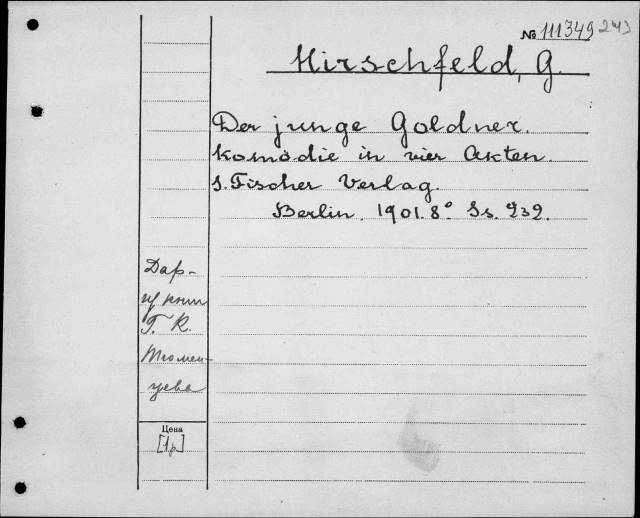 № 111349 243
Hirschfeld, G.
Der junge Goldner.
Komödie in vier Akten.
S. Fischer Verlag.
Berlin. 1901. 8° Ss. 232.
Дар-
Г. К.
Тюмен-
цева
Цена
[1р]